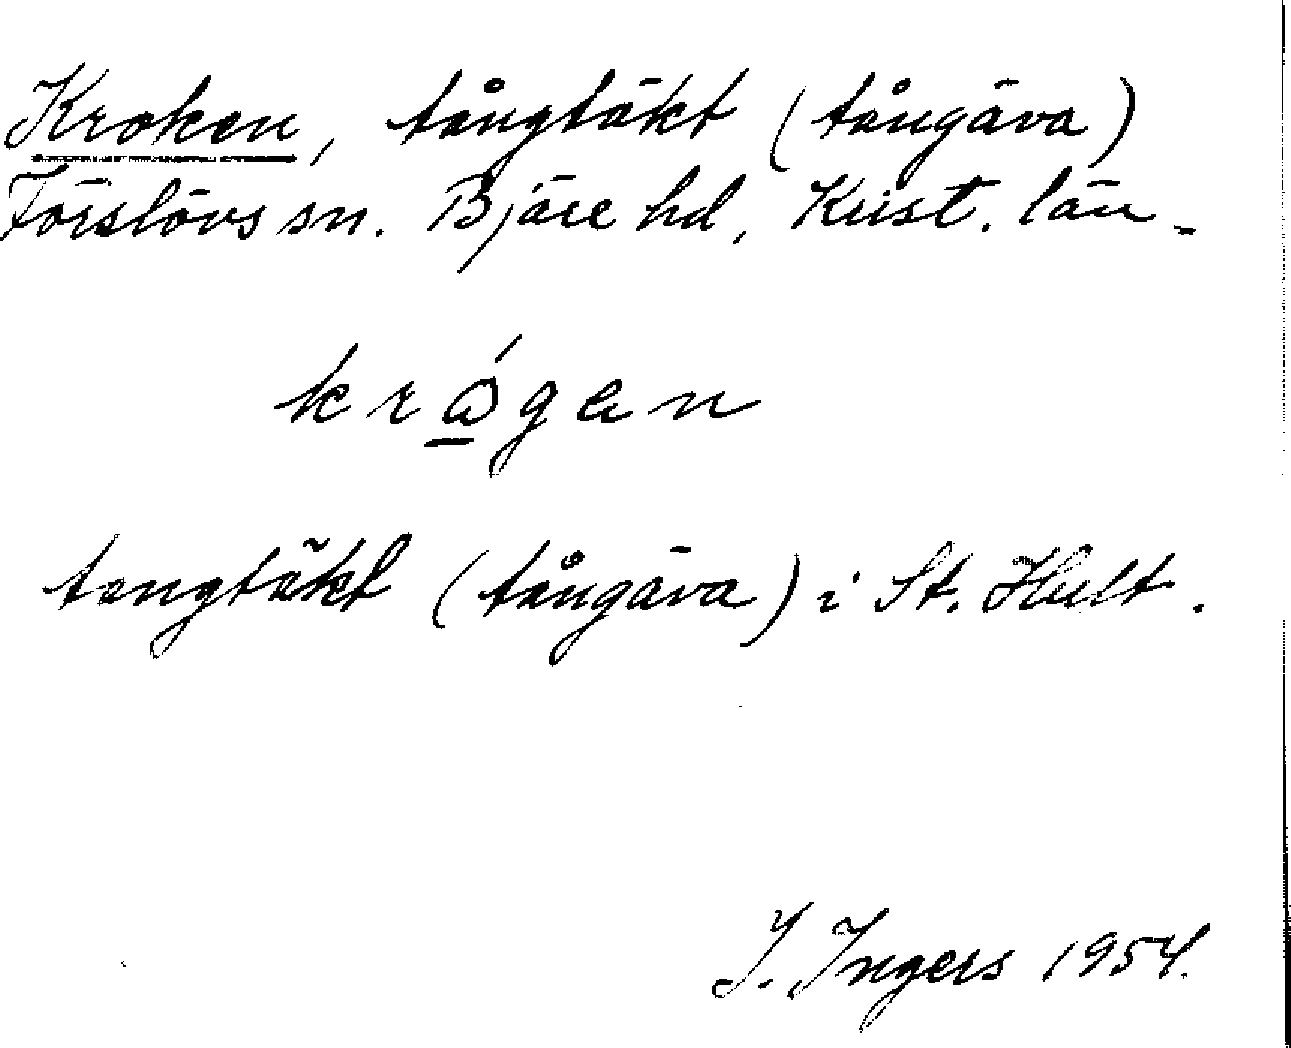 Kroken, tångtäkt (tångäva)
Förslövs sn. Bjäre hd, Krist. län.
krǻgen
tangtäkt (tångäva) i St. Hult.
I. Ingers 1954.